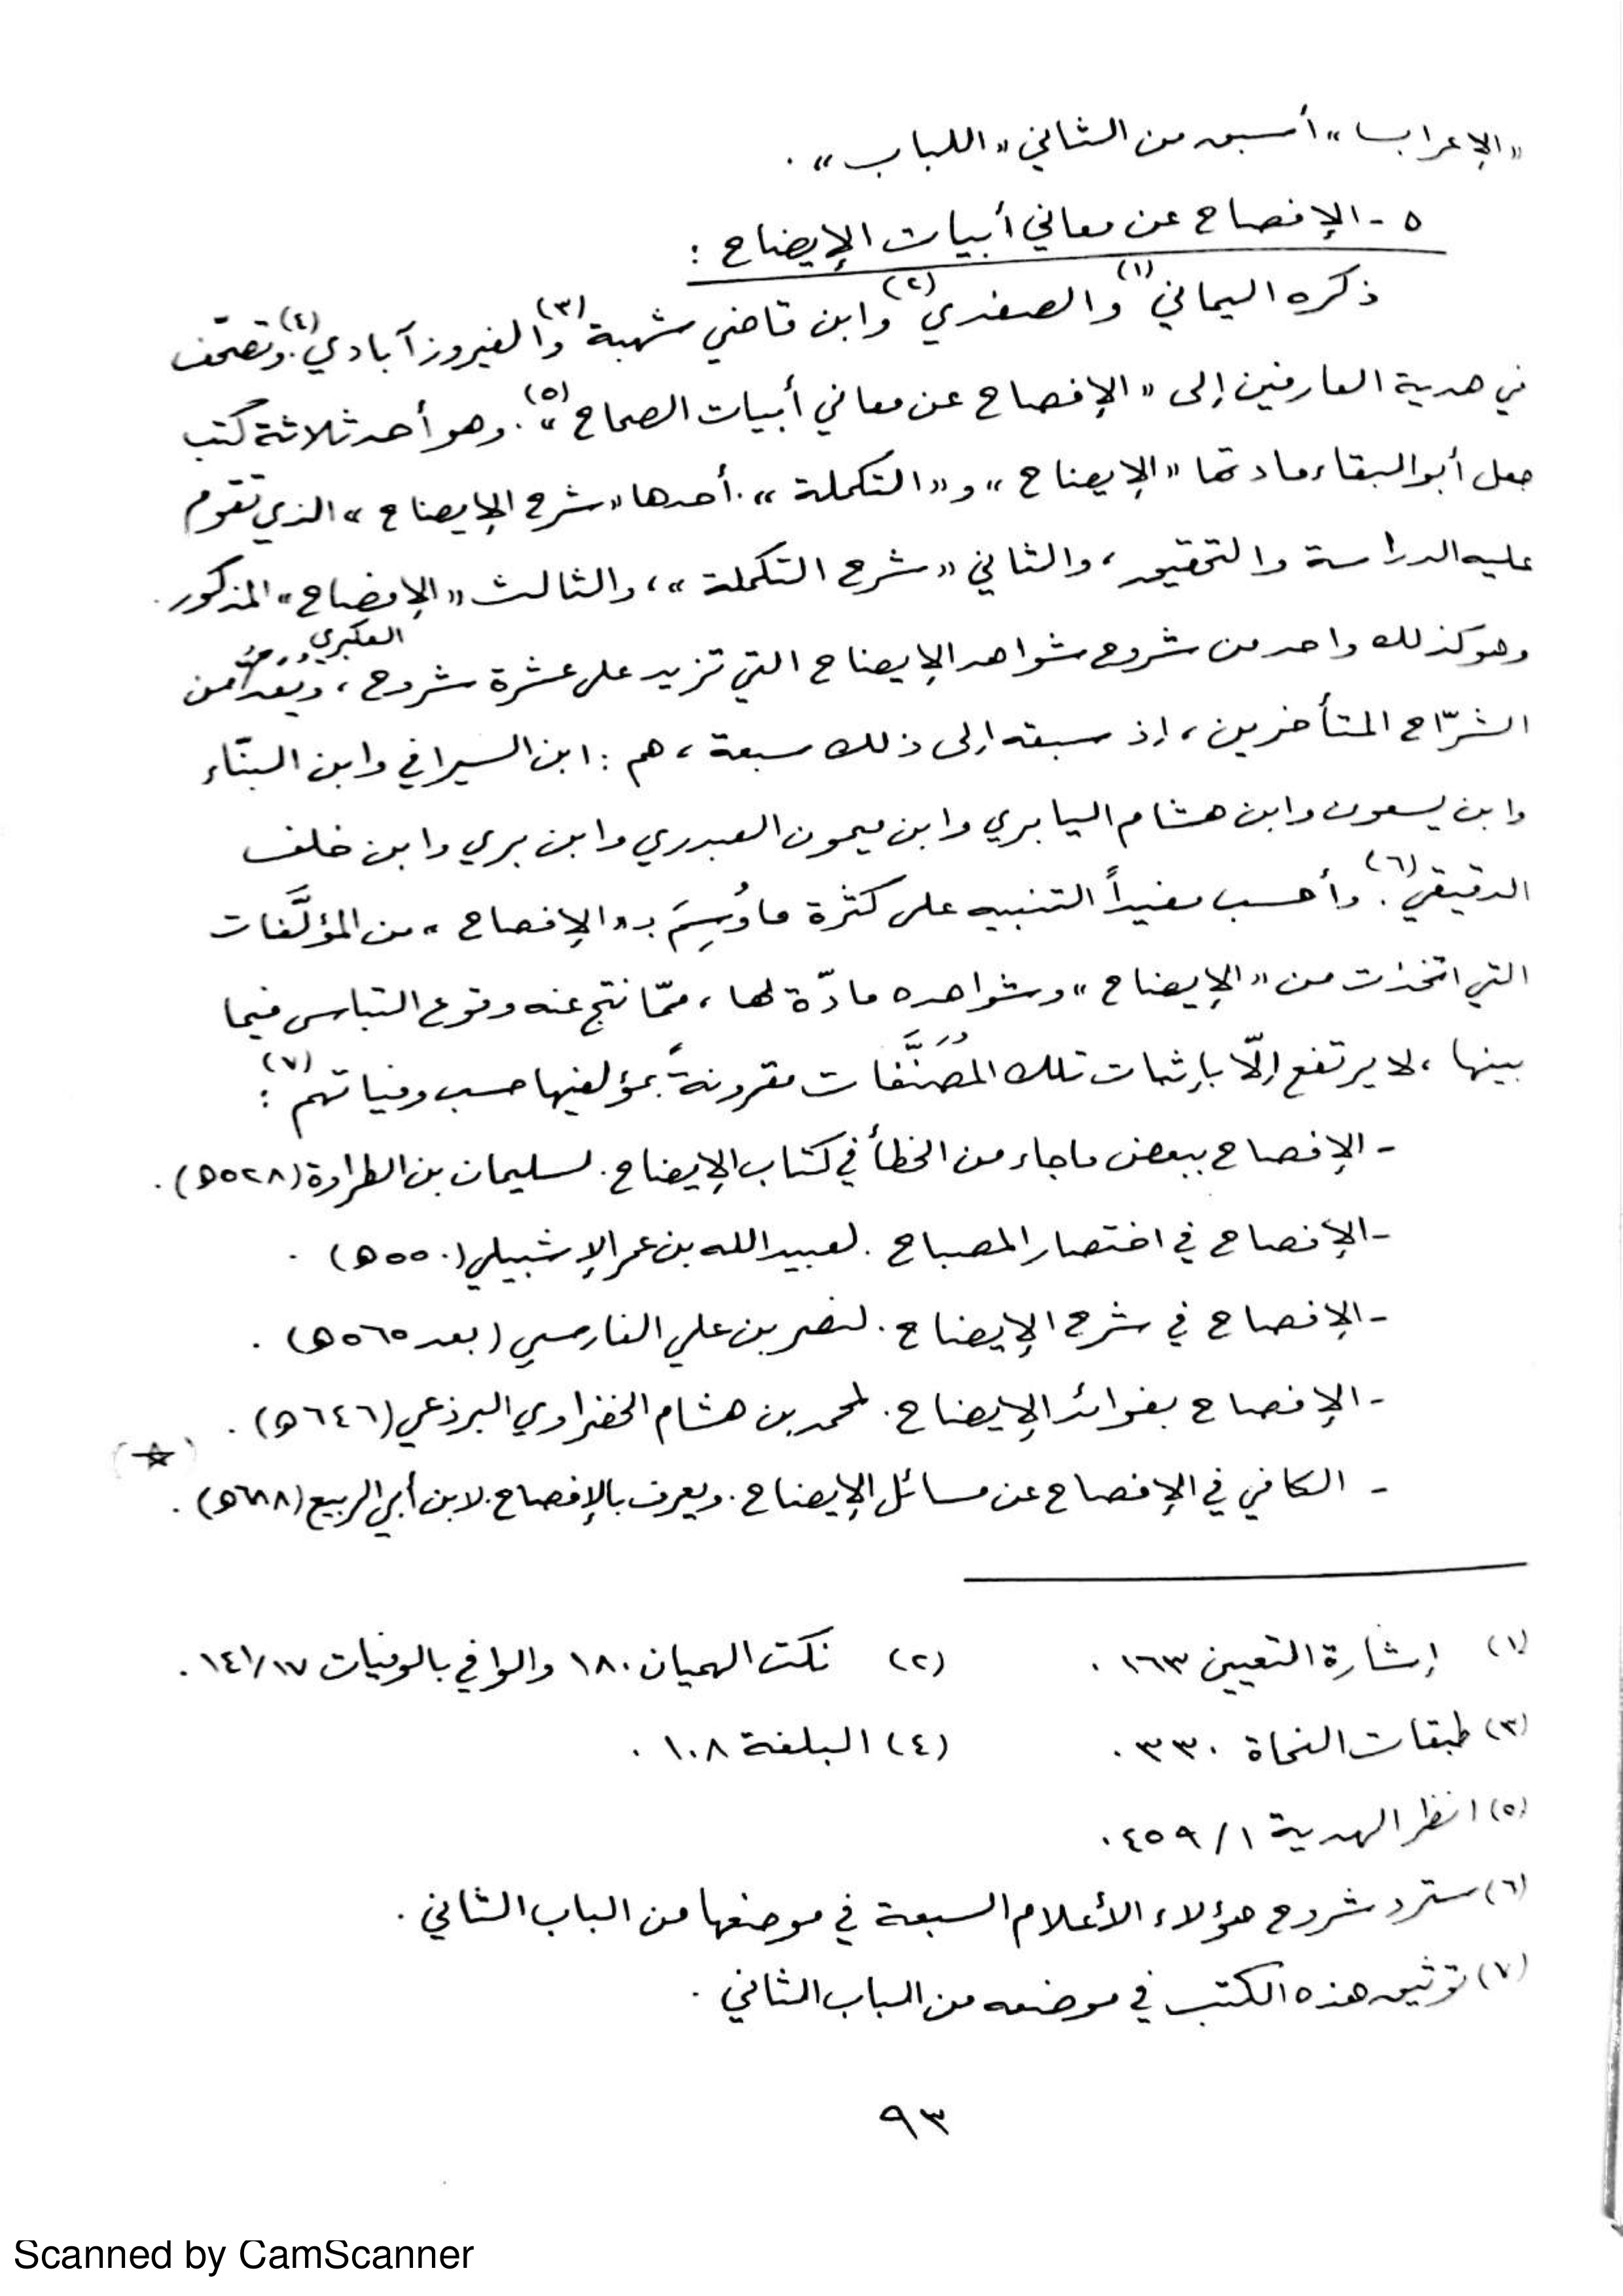 «الإعراب» أسبق من الثاني «اللباب» .
٥ - الإفصاح عن معاني أبيات الإيضاح :
ذكره اليماني(١) والصفدي(٢) وابن قاضي شهبة(٣) والفيروزآبادي(٤). وتصحّف
في هدية العارفين إلى «الإفصاح عن معاني أبيات الصحاح»(٥). وهو أحد ثلاثة كتب
جعل أبو البقاء مادتها «الإيضاح» و«التكملة». أحدها «شرح الإيضاح» الذي تقوم
عليه الدراسة والتحقيق، والثاني «شرح التكملة»، والثالث «الإفصاح» المذكور.
وهو كذلك واحد من شروح شواهد الإيضاح التي تزيد على عشرة شروح، ويعد العكبري من
الشرّاح المتأخرين، إذ سبقه إلى ذلك سبعة، هم: ابن السيرافي وابن البنّاء
وابن يسعون وابن هشام اليابري وابن ميمون العبدري وابن بري وابن خلف
الدقيقي(٦). وأحسب مفيداً التنبيه على كثرة ما وُسِمَ بـ«الإفصاح» من المؤلَّفات
التي اتخذت من «الإيضاح» وشواهده مادّة لها، ممّا نتج عنه وقوع التباس فيما
بينها، لا يرتفع إلّا بإثبات تلك المُصَنَّفات مقرونةً بمؤلفيها حسب وفياتهم(٧):
- الإفصاح ببعض ما جاء من الخطأ في كتاب الإيضاح. لسليمان بن الطراوة (٥٢٨هـ).
- الإفصاح في اختصار المصباح. لعبيدالله بن عمر الإشبيلي (٥٥٠هـ) .
- الإفصاح في شرح الإيضاح. لنصر بن علي الفارسي (بعد ٥٦٥هـ) .
- الإفصاح بفوائد الإيضاح. لمحمد بن هشام الخضراوي البرذعي (٦٤٦هـ) .
(☆)
- الكافي في الإفصاح عن مسائل الإيضاح. ويعرف بالإفصاح. لابن أبي الربيع (٦٨٨هـ) .
(١) إشارة التعيين ١٦٣ . (٢) نكت الهميان ١٨٠ والوافي بالوفيات ١٤١/١٧ .
(٣) طبقات النحاة ٣٣٠ . (٤) البلغة ١٠٨ .
(٥) انظر الهدية ١/ ٤٥٩ .
(٦) سترد شروح هؤلاء الأعلام السبعة في موضعها من الباب الثاني .
(٧) توثيق هذه الكتب في موضعه من الباب الثاني .
٩٣
Scanned by CamScanner